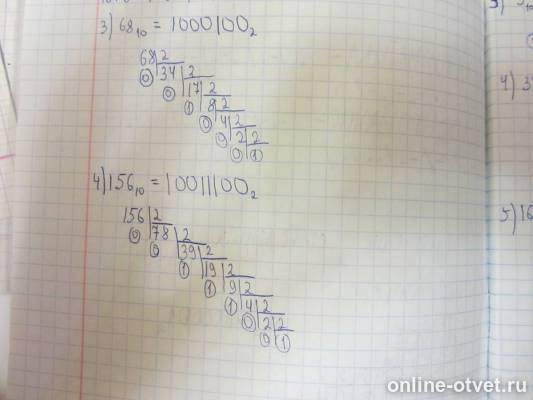 3) 68₁₀ = 1000100₂
68 2
0 34 2
0 17 2
1 8 2
0 4 2
0 2 2
0 1
4) 156₁₀ = 10011100₂
156 2
0 78 2
0 39 2
1 19 2
1 9 2
1 4 2
0 2 2
0 1
4) 3
5) 16
online-otvet.ru